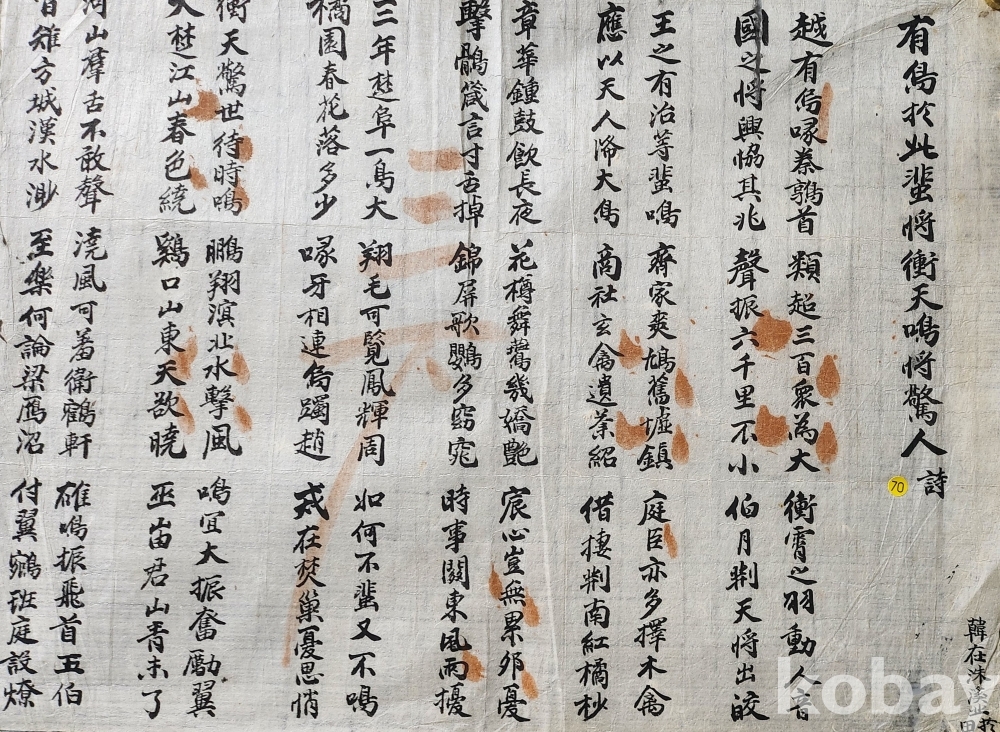 有鳥於此蜚將衝天鳴將驚人 詩
越有鳥喙秦鶉首
國之將興協其兆
類超三百衆為大
聲振六千里不小
衝霄之羽動人音
伯月荊天將出皎
王之有治等蜚鳴
應以天人降大鳥
齊家爽鳩舊墟鎮
商社玄禽遺業紹
庭臣亦多擇木禽
借捿荊南紅橘杪
章華鍾鼓飮長夜
擊鶻箴言寸舌掉
花樽舞鸞幾嬌艶
錦屏歌鸚多窈窕
宸心豈無累卵憂
時事関東風雨擾
三年楚阜一鳥大
橘園春花落多少
翔毛可覽鳳輝周
喙牙相連鳥躅趙
如何不蜚又不鳴
或在焚巢憂思悄
衝天驚世待時鳴
大楚江山春色繞
鵬翔溟北水擊風
鷄口山東天欲曉
鳴宜大振奮勵翼
巫峀君山靑未了
河山羣舌不敢聲
雉方城漢水渺
澆風可羞衛鶴軒
至樂何論梁鴈沼
雄鳴振飛首五伯
付翼鵷班庭設燎
70
韓在洙
kobay